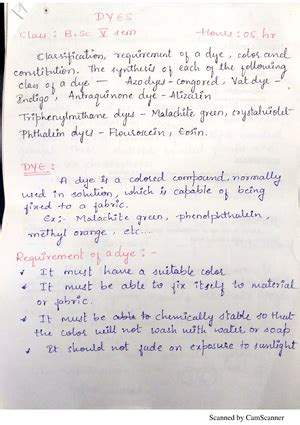 DYES
Class : B.Sc V sem - Hours : 05 hr
Classification, requirement of a dye, color and
constitution. The synthesis of each of the following
class of a dye — Azodyes - congored, Vat dye -
Endigo, Antraquinone dye - Alizarin
Triphenylmethane dyes - Malachite green, crystalviolet
Phthalein dyes - Flouroscein, Eosin.
DYE :
A dye is a colored compound, normally
used in solution, which is capable of being
fixed to a fabric.
Ex:- Malachite green, phenolphthalein,
methyl orange, etc...
Requirement of a dye : -
It must have a suitable color
It must be able to fix itself to material
or fabric.
It must be able to chemically stable so that
the color will not wash with water or soap
It should not fade on exposure to sunlight
Scanned by CamScanner